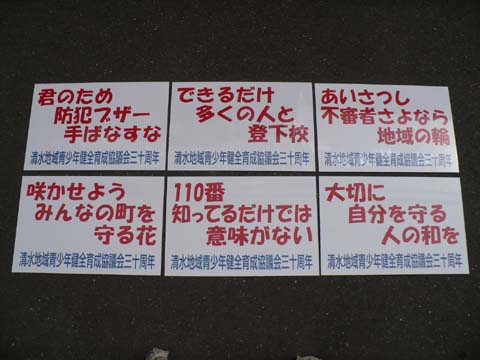 君のため
防犯ブザー
手ばなすな
清水地域青少年健全育成協議会三十周年
できるだけ
多くの人と
登下校
清水地域青少年健全育成協議会三十周年
あいさつし
不審者さよなら
地域の輪
清水地域青少年健全育成協議会三十周年
咲かせよう
みんなの町を
守る花
清水地域青少年健全育成協議会三十周年
110番
知ってるだけでは
意味がない
清水地域青少年健全育成協議会三十周年
大切に
自分を守る
人の和を
清水地域青少年健全育成協議会三十周年